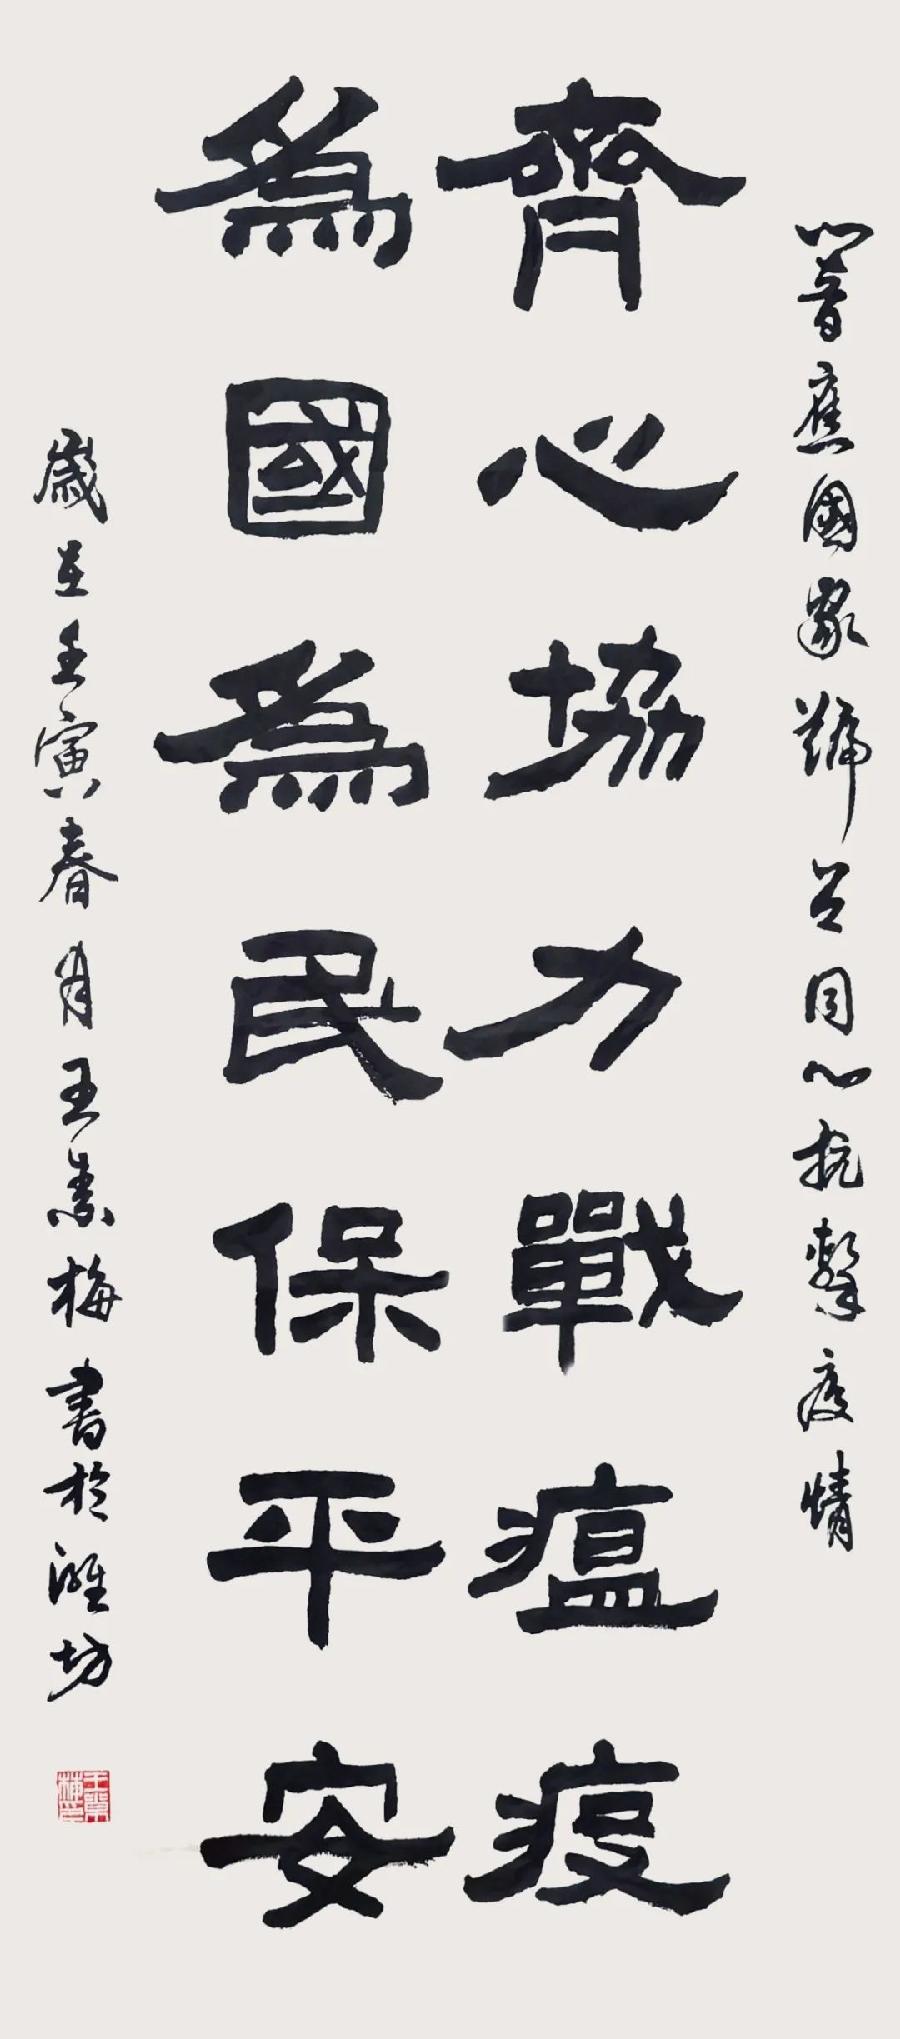 響應國家號召同心抗擊疫情
齊心協力戰瘟疫
為國為民保平安
歲在壬寅春月王梅書於濰坊